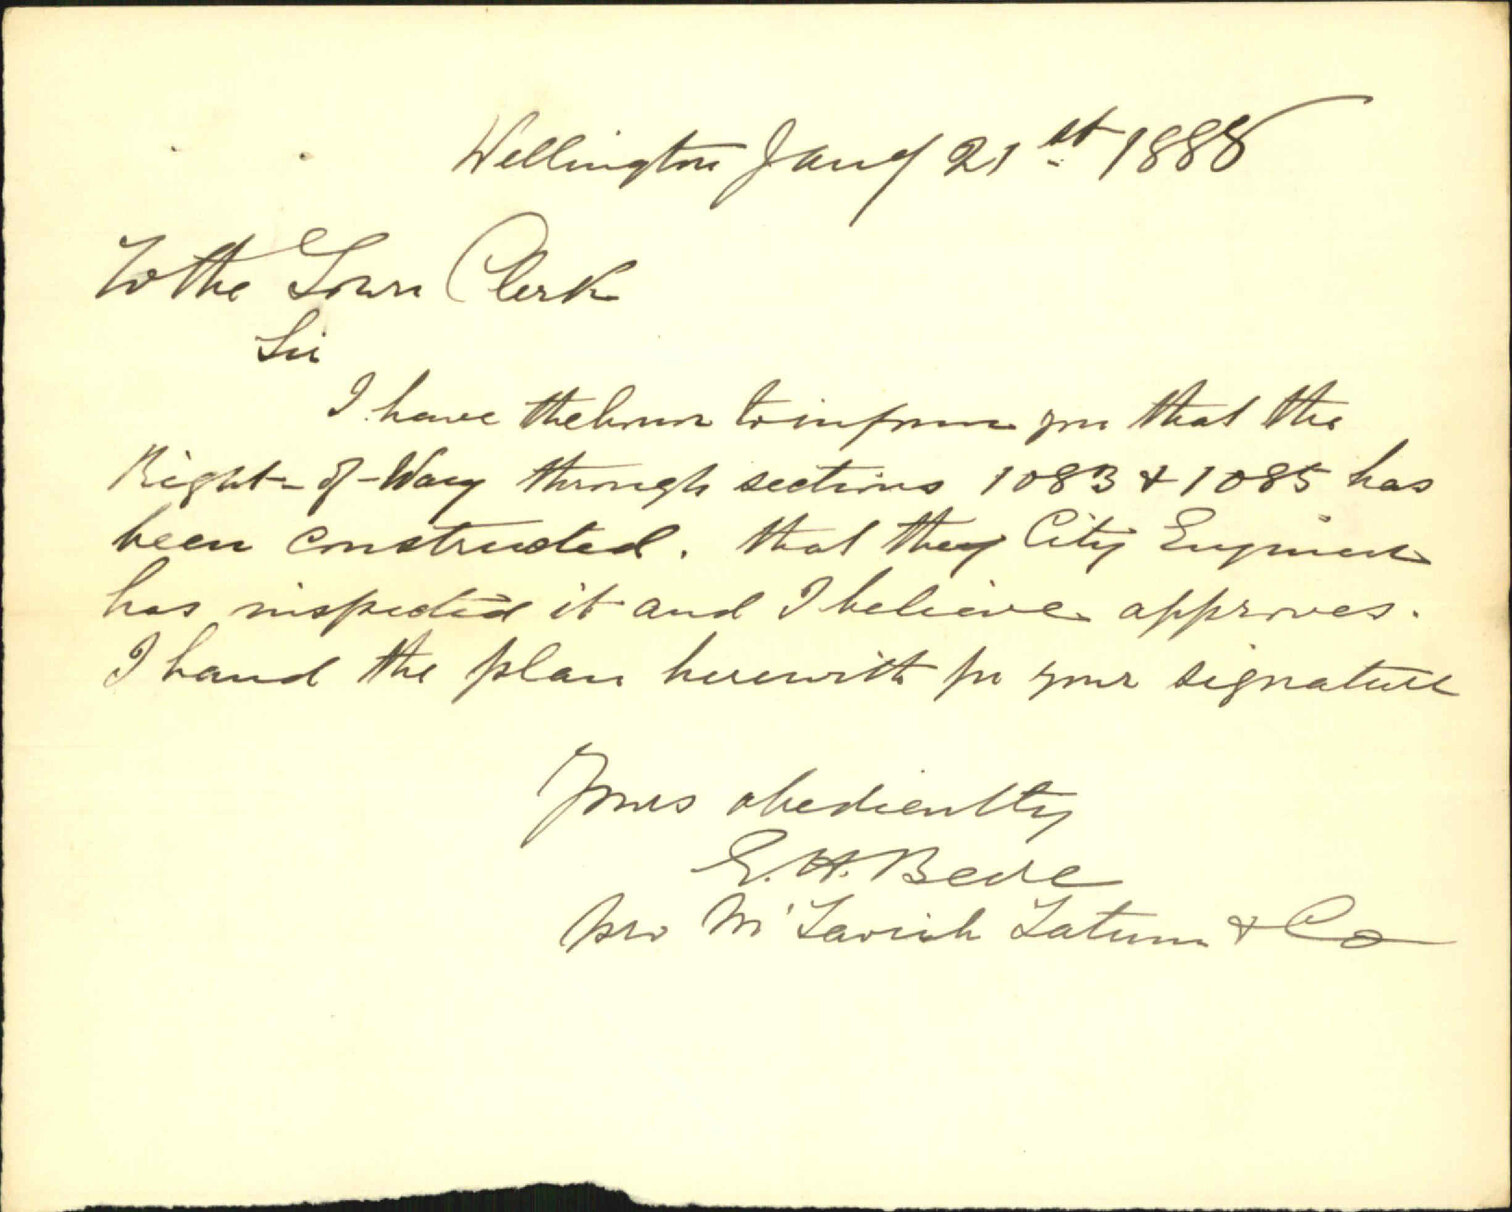 Wellington Jany 21st 1888
To the Town Clerk
Sir
I have the honor to inform you that the
Right-of-Way through sections 1083 & 1085 has
been constructed. that they City Engineer
has inspected it and I believe approves.
I hand the plan herewith for your signature
Yours obediently
E. H. Beere
pro McTavish Tatum & Co